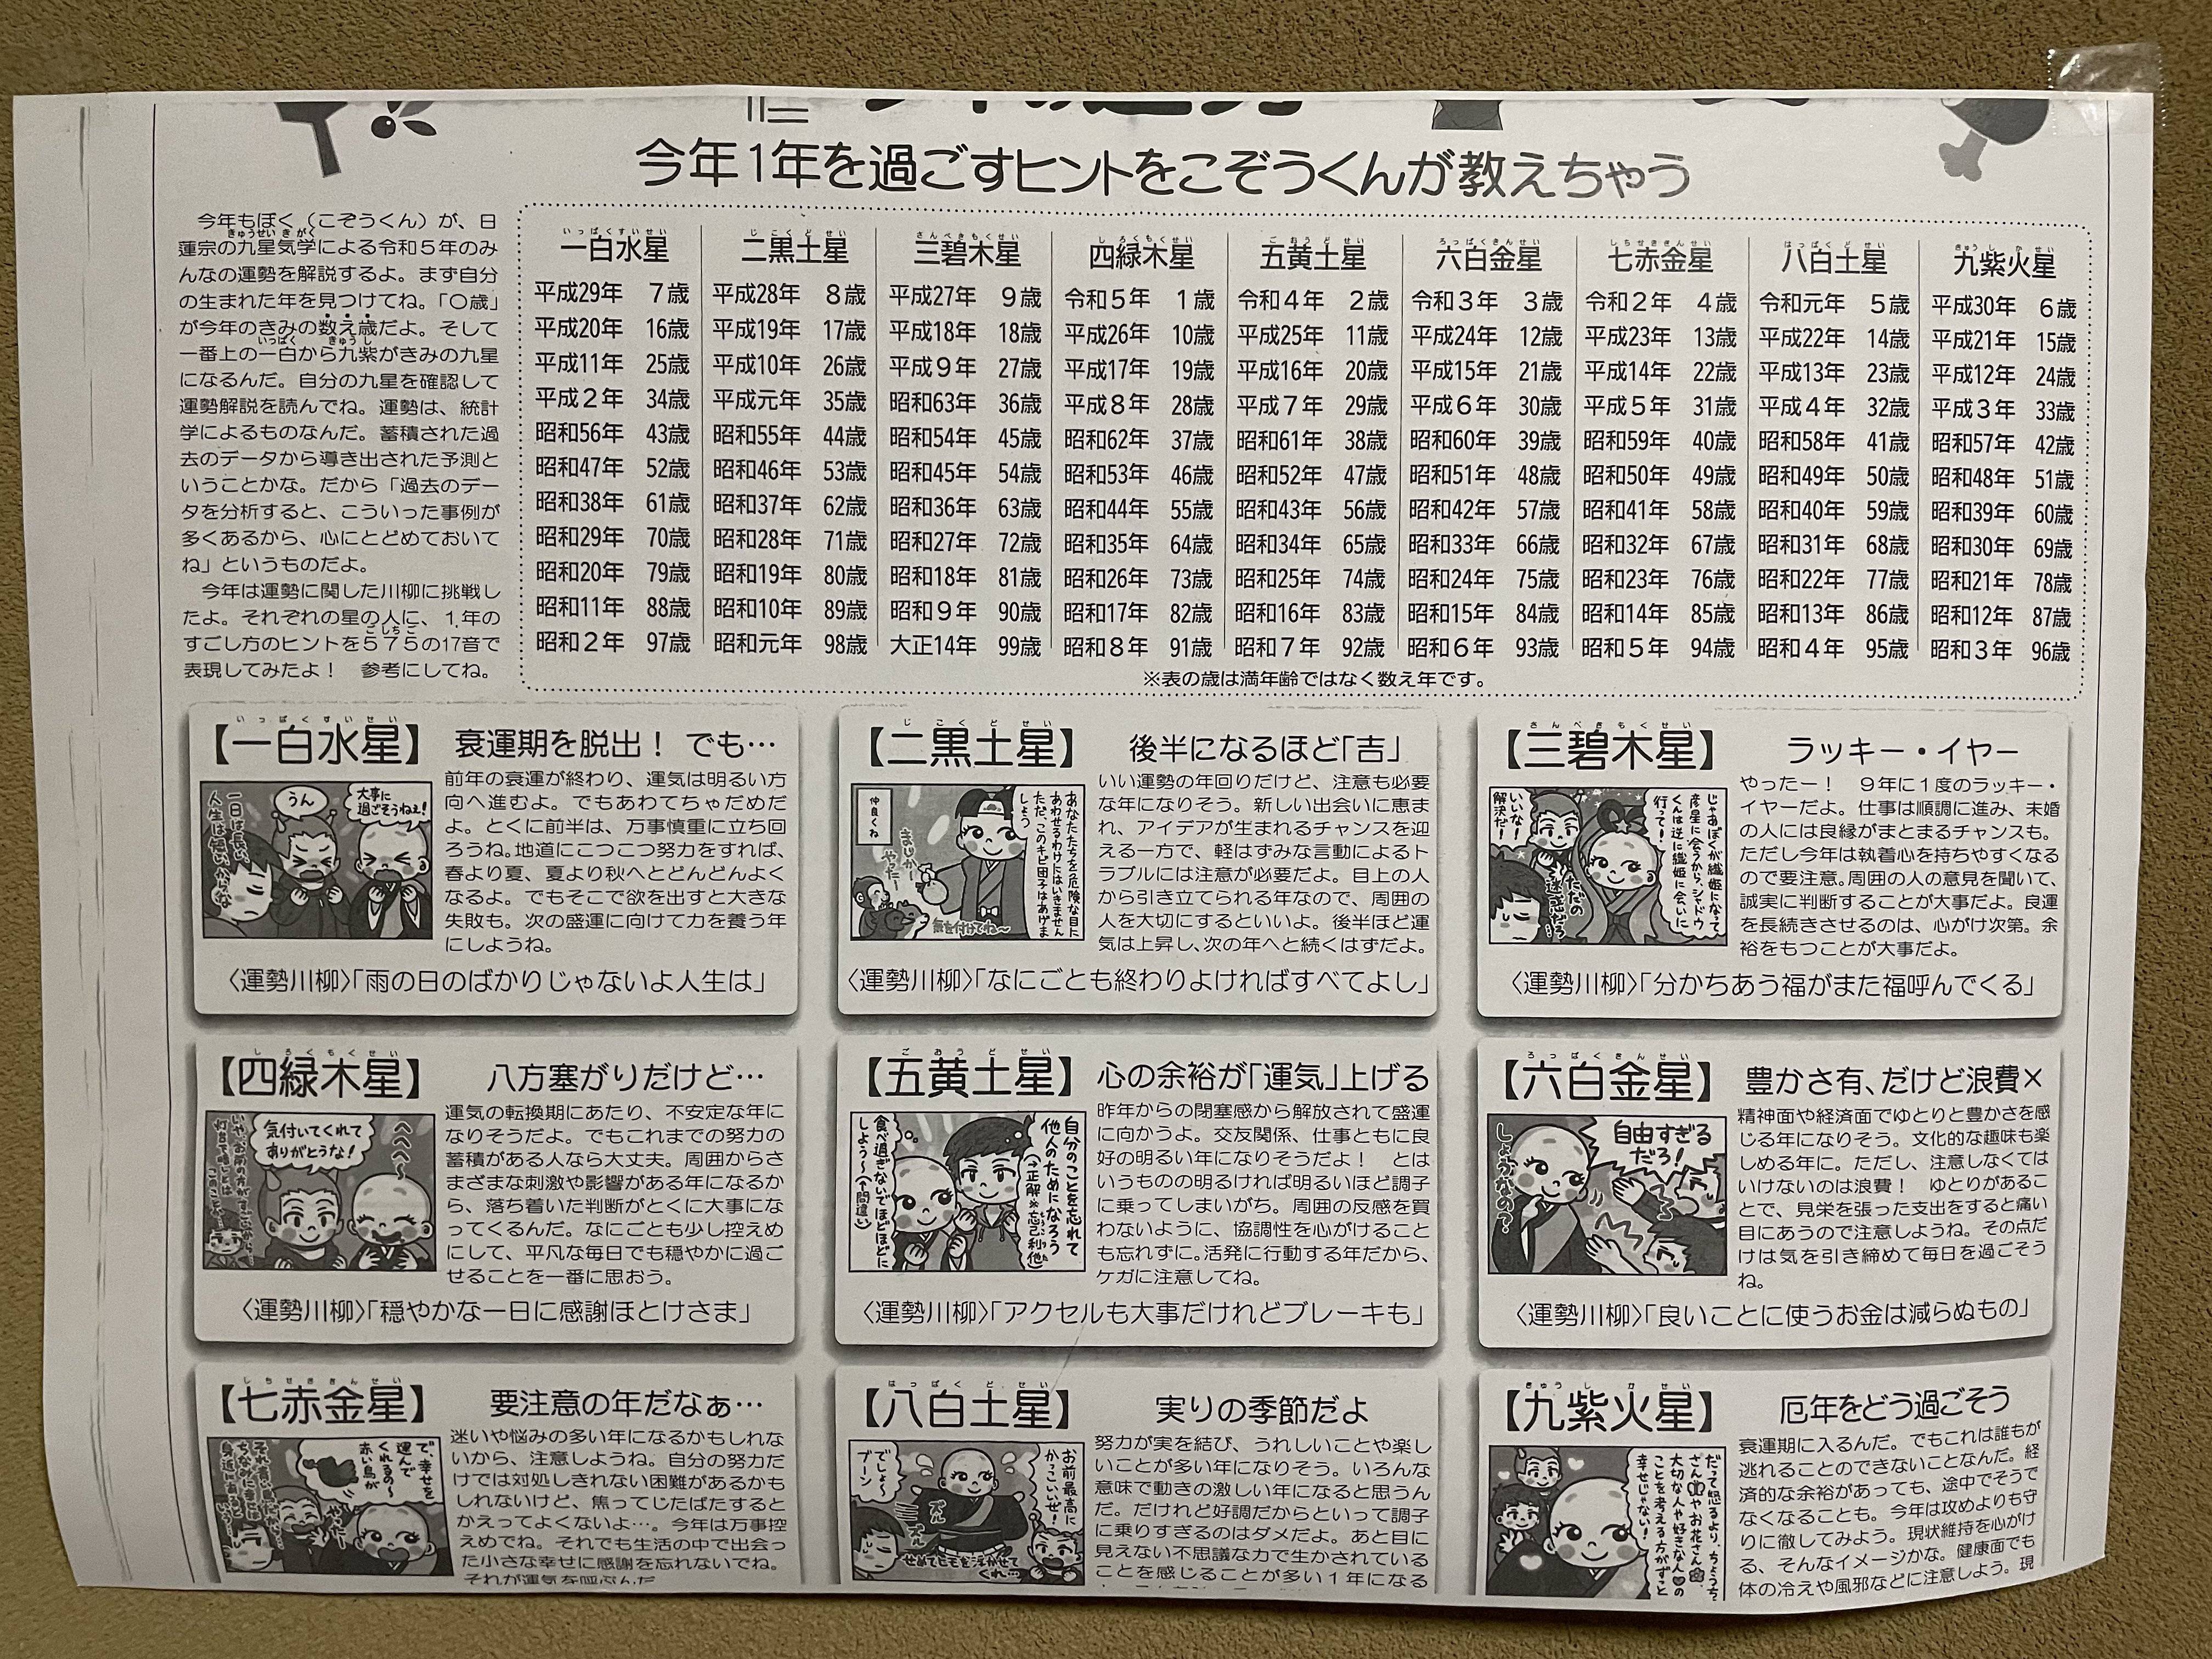 今年1年を過ごすヒントをこぞうくんが教えちゃう
今年もぼく（こぞうくん）が、日
蓮宗の九星気学による令和5年のみ
んなの運勢を解説するよ。まず自分
の生まれた年を見つけてね。「〇歳」
が今年のきみの数え歳だよ。そして
一番上の一白から九紫がきみの九星
になるんだ。自分の九星を確認して
運勢解説を読んでね。運勢は、統計
学によるものなんだ。蓄積された過
去のデータから導き出された予測と
いうことかな。だから「過去のデー
タを分析すると、こういった事例が
多くあるから、心にとどめておいて
ね」というものだよ。
今年は運勢に関した川柳に挑戦し
たよ。それぞれの星の人に、1年の
すごし方のヒントを575の17音で
表現してみたよ！　参考にしてね。
一白水星 二黒土星 三碧木星 四緑木星 五黄土星 六白金星 七赤金星 八白土星 九紫火星
平成29年 7歳 平成28年 8歳 平成27年 9歳 令和5年 1歳 令和4年 2歳 令和3年 3歳 令和2年 4歳 令和元年 5歳 平成30年 6歳
平成20年 16歳 平成19年 17歳 平成18年 18歳 平成26年 10歳 平成25年 11歳 平成24年 12歳 平成23年 13歳 平成22年 14歳 平成21年 15歳
平成11年 25歳 平成10年 26歳 平成9年 27歳 平成17年 19歳 平成16年 20歳 平成15年 21歳 平成14年 22歳 平成13年 23歳 平成12年 24歳
平成2年 34歳 平成元年 35歳 昭和63年 36歳 平成8年 28歳 平成7年 29歳 平成6年 30歳 平成5年 31歳 平成4年 32歳 平成3年 33歳
昭和56年 43歳 昭和55年 44歳 昭和54年 45歳 昭和62年 37歳 昭和61年 38歳 昭和60年 39歳 昭和59年 40歳 昭和58年 41歳 昭和57年 42歳
昭和47年 52歳 昭和46年 53歳 昭和45年 54歳 昭和53年 46歳 昭和52年 47歳 昭和51年 48歳 昭和50年 49歳 昭和49年 50歳 昭和48年 51歳
昭和38年 61歳 昭和37年 62歳 昭和36年 63歳 昭和44年 55歳 昭和43年 56歳 昭和42年 57歳 昭和41年 58歳 昭和40年 59歳 昭和39年 60歳
昭和29年 70歳 昭和28年 71歳 昭和27年 72歳 昭和35年 64歳 昭和34年 65歳 昭和33年 66歳 昭和32年 67歳 昭和31年 68歳 昭和30年 69歳
昭和20年 79歳 昭和19年 80歳 昭和18年 81歳 昭和26年 73歳 昭和25年 74歳 昭和24年 75歳 昭和23年 76歳 昭和22年 77歳 昭和21年 78歳
昭和11年 88歳 昭和10年 89歳 昭和9年 90歳 昭和17年 82歳 昭和16年 83歳 昭和15年 84歳 昭和14年 85歳 昭和13年 86歳 昭和12年 87歳
昭和2年 97歳 昭和元年 98歳 大正14年 99歳 昭和8年 91歳 昭和7年 92歳 昭和6年 93歳 昭和5年 94歳 昭和4年 95歳 昭和3年 96歳
※表の歳は満年齢ではなく数え年です。
【一白水星】 衰運期を脱出！ でも…
大事に
過ごそうねぇ！
うん
一日は長い、
人生は短い、からな
前年の衰運が終わり、運気は明るい方
向へ進むよ。でもあわてちゃだめだ
よ。とくに前半は、万事慎重に立ち回
ろうね。地道にこつこつ努力をすれば、
春より夏、夏より秋へとどんどんよく
なるよ。でもそこで欲を出すと大きな
失敗も。次の盛運に向けて力を養う年
にしようね。
〈運勢川柳〉「雨の日のばかりじゃないよ人生は」
【二黒土星】 後半になるほど「吉」
あなたたちを危険な目に
あわせるわけにはいきません
ただ、このキビ団子はあげま
しょう
仲良くね
まじかー
やったー
気を付けてね〜
いい運勢の年回りだけど、注意も必要
な年になりそう。新しい出会いに恵ま
れ、アイデアが生まれるチャンスを迎
える一方で、軽はずみな言動によるト
ラブルには注意が必要だよ。目上の人
から引き立てられる年なので、周囲の
人を大切にするといいよ。後半ほど運
気は上昇し、次の年へと続くはずだよ。
〈運勢川柳〉「なにごとも終わりよければすべてよし」
【三碧木星】 ラッキー・イヤー
じゃあぼくが織姫になって
彦星に会うから、シャドウ
くんは逆に織姫に会いに
行って！
いいな！
解決だ！
ただの
迷惑だろ
やったー！　9年に1度のラッキー・
イヤーだよ。仕事は順調に進み、未婚
の人には良縁がまとまるチャンスも。
ただし今年は執着心を持ちやすくなる
ので要注意。周囲の人の意見を聞いて、
誠実に判断することが大事だよ。良運
を長続きさせるのは、心がけ次第。余
裕をもつことが大事だよ。
〈運勢川柳〉「分かちあう福がまた福呼んでくる」
【四緑木星】 八方塞がりだけど…
へへへ〜
気付いてくれて
ありがとうな！
運気の転換期にあたり、不安定な年に
なりそうだよ。でもこれまでの努力の
蓄積がある人なら大丈夫。周囲からさ
まざまな刺激や影響がある年になるか
ら、落ち着いた判断がとくに大事にな
ってくるんだ。なにごとも少し控えめ
にして、平凡な毎日でも穏やかに過ご
せることを一番に思おう。
〈運勢川柳〉「穏やかな一日に感謝ほとけさま」
【五黄土星】 心の余裕が「運気」上げる
自分のことを忘れて
他人のためになろう
（→正解※忘己利他）
食べ過ぎないでほどほどに
しよう〜（↑間違い）
昨年からの閉塞感から解放されて盛運
に向かうよ。交友関係、仕事ともに良
好の明るい年になりそうだよ！　とは
いうものの明るければ明るいほど調子
に乗ってしまいがち。周囲の反感を買
わないように、協調性を心がけること
も忘れずに。活発に行動する年だから、
ケガに注意してね。
〈運勢川柳〉「アクセルも大事だけれどブレーキも」
【六白金星】 豊かさ有、だけど浪費×
自由すぎる
だろ！
しょうなの？
精神面や経済面でゆとりと豊かさを感
じる年になりそう。文化的な趣味も楽
しめる年に。ただし、注意しなくては
いけないのは浪費！　ゆとりがあるこ
とで、見栄を張った支出をすると痛い
目にあうので注意しようね。その点だ
けは気を引き締めて毎日を過ごそう
ね。
〈運勢川柳〉「良いことに使うお金は減らぬもの」
【七赤金星】 要注意の年だなぁ…
で、幸せを
運んで
くれるの〜
赤い鳥が
やったー
迷いや悩みの多い年になるかもしれな
いから、注意しようね。自分の努力だ
けでは対処しきれない困難があるかも
しれないけど、焦ってじたばたすると
かえってよくないよ…。今年は万事控
えめでね。それでも生活の中で出会っ
た小さな幸せに感謝を忘れないでね。
それが運気を呼ぶんだ
【八白土星】 実りの季節だよ
お前最高に
かっこいいぜ！
でしょ〜
ブーン
せめてヒモを浮かせて
くれ…
努力が実を結び、うれしいことや楽し
いことが多い年になりそう。いろんな
意味で動きの激しい年になると思うん
だ。だけれど好調だからといって調子
に乗りすぎるのはダメだよ。あと目に
見えない不思議な力で生かされている
ことを感じることが多い1年になる
【九紫火星】 厄年をどう過ごそう
だって怒るより、ちょうち
さんやお花さん、
大切な人や好きな人の
ことを考える方がずっと
幸せじゃない！
衰運期に入るんだ。でもこれは誰もが
逃れることのできないことなんだ。経
済的な余裕があっても、途中でそうで
なくなることも。今年は攻めよりも守
りに徹してみよう。現状維持を心がけ
る、そんなイメージかな。健康面でも
体の冷えや風邪などに注意しよう。現